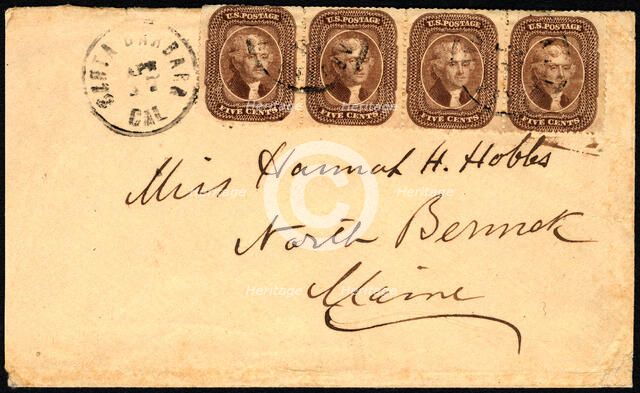 SANTA BARBARA
CAL
U.S. POSTAGE
FIVE CENTS
U.S. POSTAGE
FIVE CENTS
U.S. POSTAGE
FIVE CENTS
U.S. POSTAGE
FIVE CENTS
Miss Hannah H. Hobbs
North Berwick
Maine
Heritage
Heritage
Heritage
Heritage
Heritage
Heritage